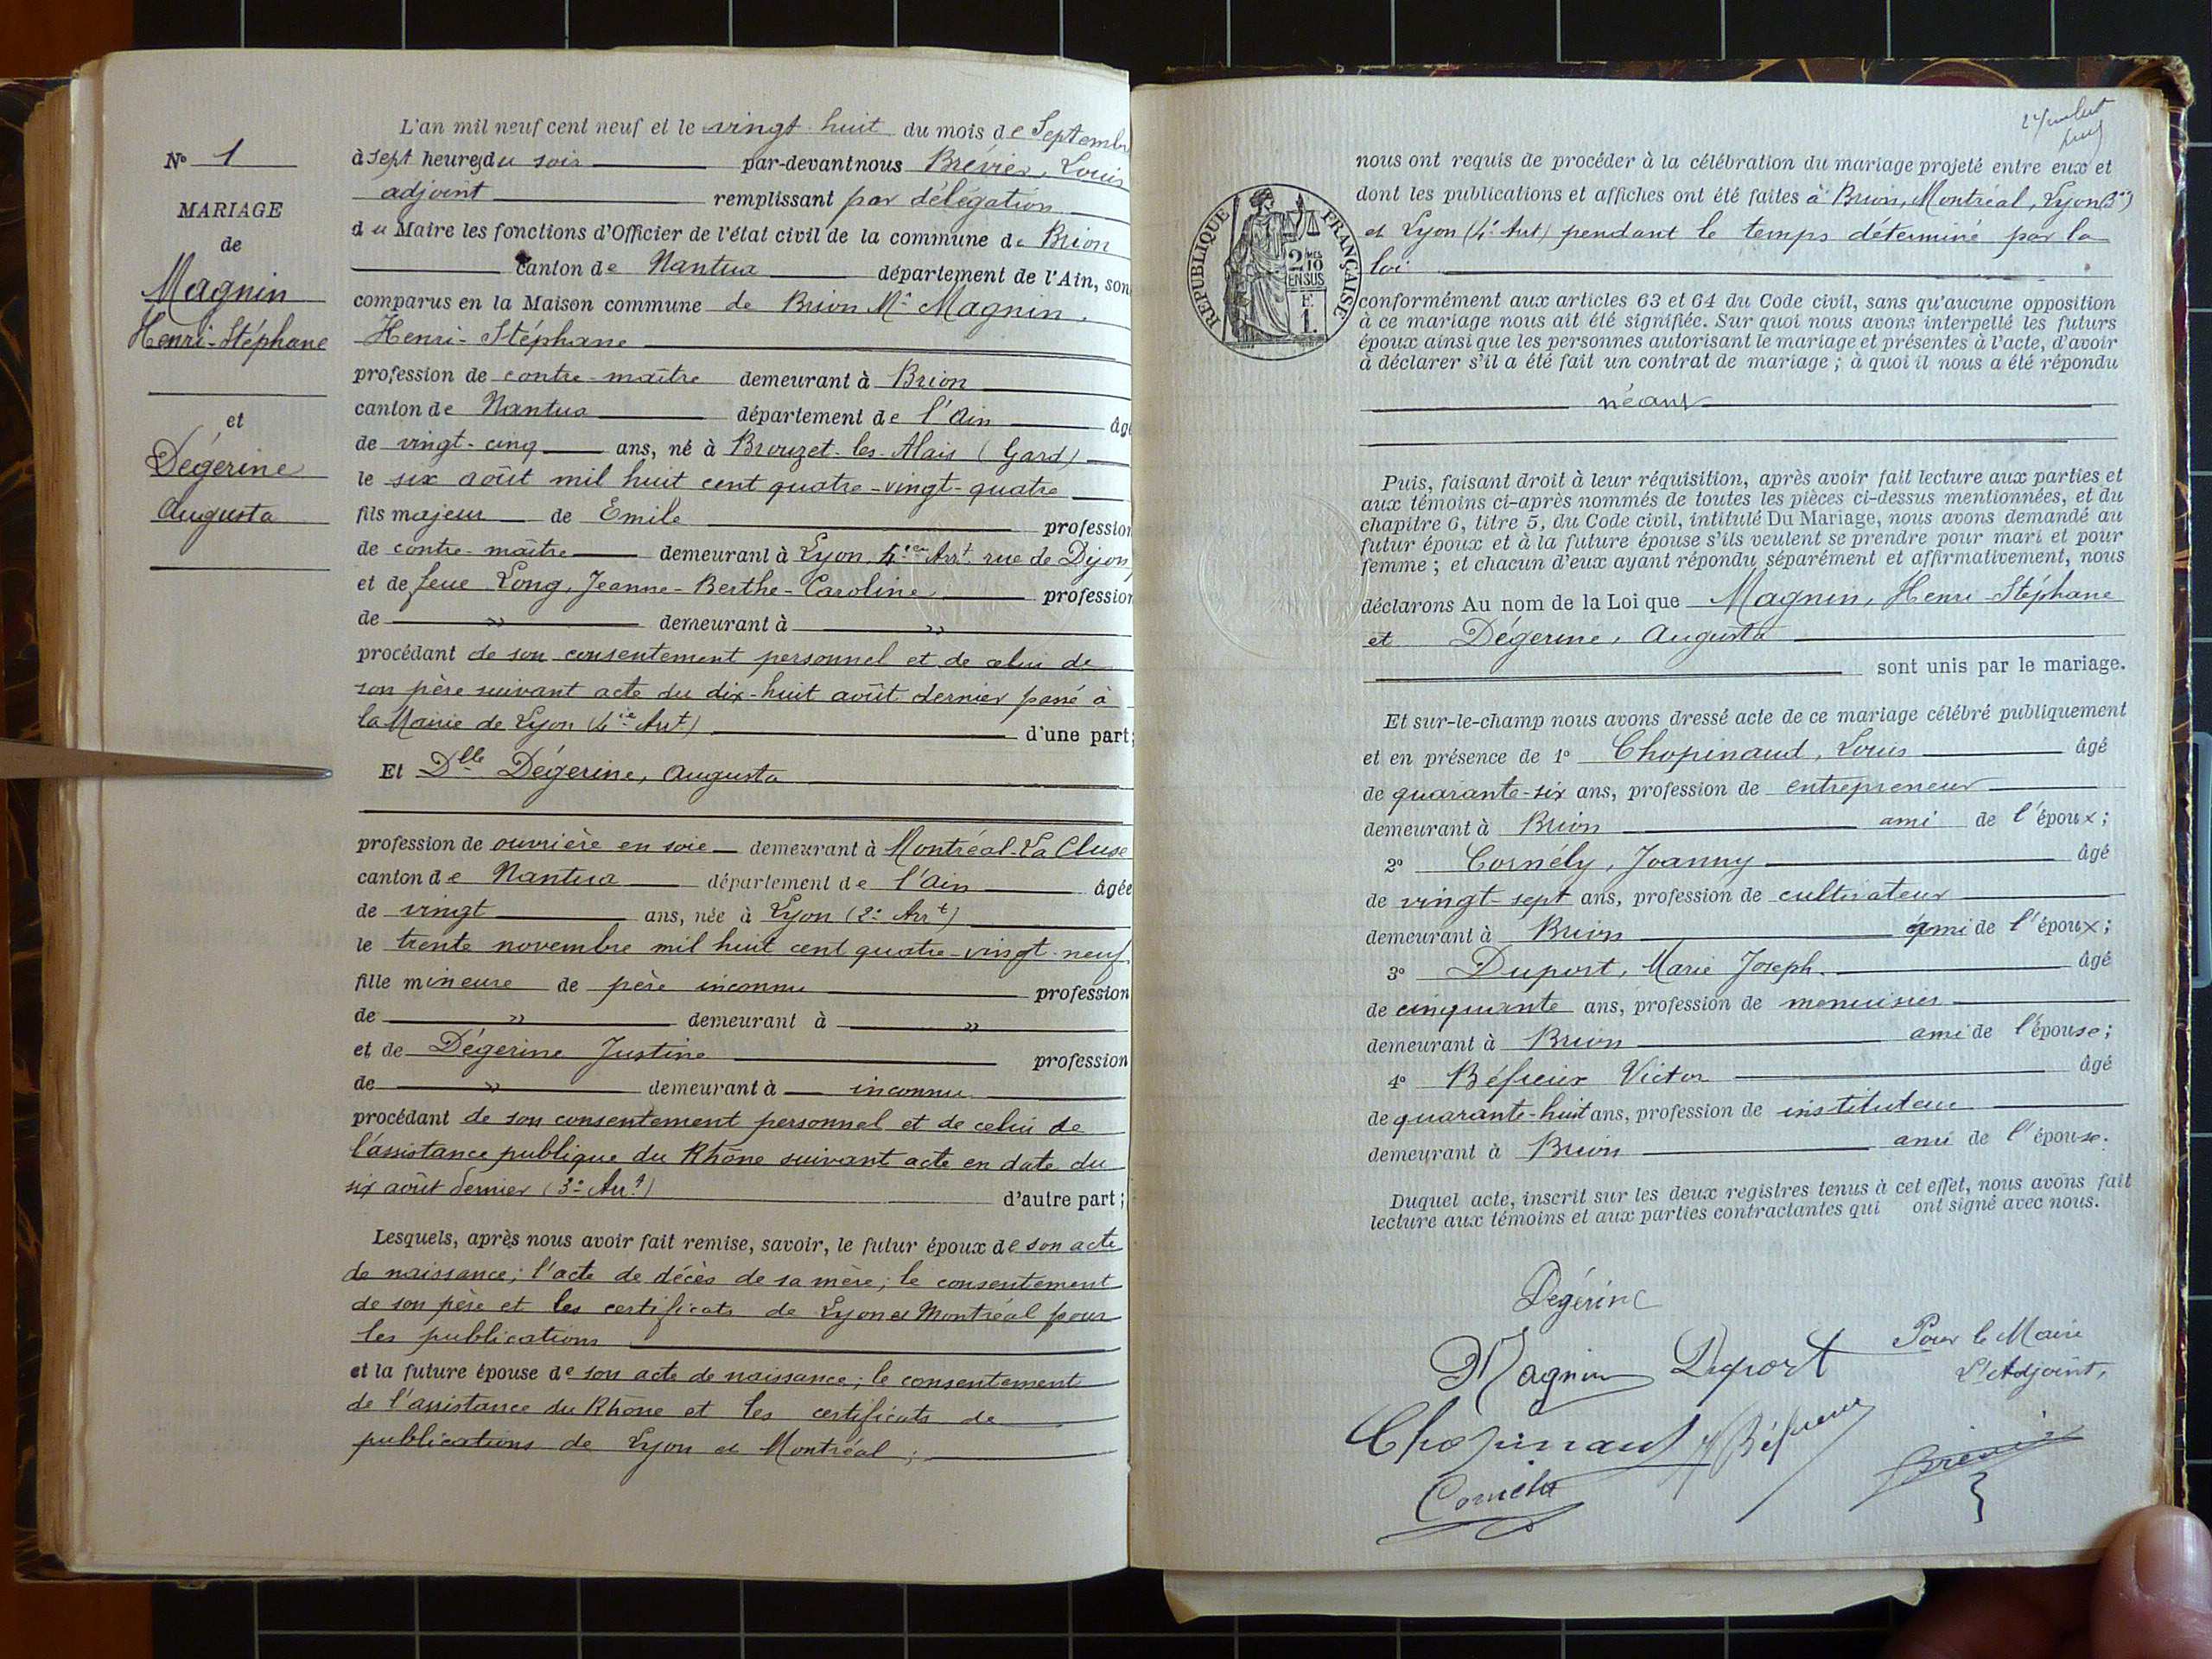 N° 1
MARIAGE
de
Magnin
Henri-Stéphane
et
Dégerine
Augusta
L'an mil neuf cent neuf et le vingt-huit du mois de Septembre
à sept heures du soir par-devant nous Brévier, Louis
adjoint remplissant par délégation
du Maire les fonctions d'Officier de l'état civil de la commune de Brion
canton de Nantua département de l'Ain, sont
comparus en la Maison commune de Brion Mr Magnin,
Henri-Stéphane
profession de contre-maître demeurant à Brion
canton de Nantua département de l'Ain âgé
de vingt-cinq ans, né à Brouzet-les-Alais (Gard)
le six août mil huit cent quatre-vingt-quatre
fils majeur de Emile profession
de contre-maître demeurant à Lyon, 4ième Arrt, rue de Dijon,
et de feue Long, Jeanne-Berthe-Caroline profession
de » demeurant à »
procédant de son consentement personnel et de celui de
son père suivant acte du dix-huit août dernier passé à
la Mairie de Lyon (4ie Arrt) d'une part;
Et Dlle Dégerine, Augusta
profession de ouvrière en soie demeurant à Montréal-La Cluse
canton de Nantua département de l'Ain âgée
de vingt ans, née à Lyon (2e Arrt)
le trente novembre mil huit cent quatre-vingt-neuf
fille mineure de père inconnu profession
de » demeurant à »
et de Dégerine Justine profession
de » demeurant à inconnu
procédant de son consentement personnel et de celui de
l'assistance publique du Rhône suivant acte en date du
six août dernier (3e Arrt) d'autre part;
Lesquels, après nous avoir fait remise, savoir, le futur époux de son acte
de naissance; l'acte de décès de sa mère; le consentement
de son père et les certificats de Lyon et Montréal pour
les publications
et la future épouse de son acte de naissance; le consentement
de l'assistance du Rhône et les certificats de
publications de Lyon et Montréal;
RÉPUBLIQUE FRANÇAISE
2 MES
10
EN SUS
F.
1.
nous ont requis de procéder à la célébration du mariage projeté entre eux et
dont les publications et affiches ont été faites à Brion, Montréal, Lyon (3e)
et Lyon (4e Art) pendant le temps déterminé par la
loi
conformément aux articles 63 et 64 du Code civil, sans qu'aucune opposition
à ce mariage nous ait été signifiée. Sur quoi nous avons interpellé les futurs
époux ainsi que les personnes autorisant le mariage et présentes à l'acte, d'avoir
à déclarer s'il a été fait un contrat de mariage; à quoi il nous a été répondu
néant
Puis, faisant droit à leur réquisition, après avoir fait lecture aux parties et
aux témoins ci-après nommés de toutes les pièces ci-dessus mentionnées, et du
chapitre 6, titre 5, du Code civil, intitulé Du Mariage, nous avons demandé au
futur époux et à la future épouse s'ils veulent se prendre pour mari et pour
femme; et chacun d'eux ayant répondu séparément et affirmativement, nous
déclarons Au nom de la Loi que Magnin, Henri Stéphane
et Dégerine, Augusta
sont unis par le mariage.
Et sur-le-champ nous avons dressé acte de ce mariage célébré publiquement
et en présence de 1° Chopinaud, Louis âgé
de quarante-six ans, profession de entrepreneur
demeurant à Brion ami de l'époux;
2° Cornély, Joanny âgé
de vingt-sept ans, profession de cultivateur
demeurant à Brion ami de l'époux;
3° Duport, Marie Joseph âgé
de cinquante ans, profession de menuisier
demeurant à Brion ami de l'épouse;
4° Béfreix Victor âgé
de quarante-huit ans, profession de instituteur
demeurant à Brion ami de l'épouse.
Duquel acte, inscrit sur les deux registres tenus à cet effet, nous avons fait
lecture aux témoins et aux parties contractantes qui ont signé avec nous.
Dégérine
Magnin Duport Pour le Maire
L'Adjoint,
Chopinaud